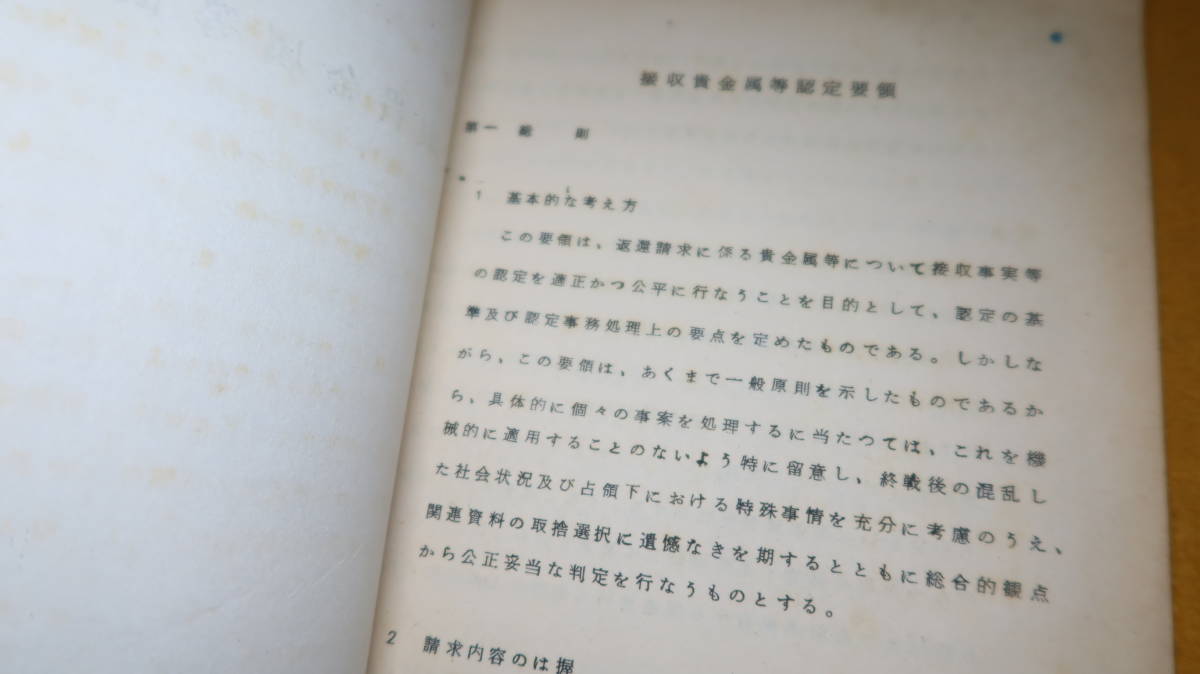 接収貴金属等認定要領
第一 総 則
1 基本的な考え方
この要領は、返還請求に係る貴金属等について接収事実等
の認定を適正かつ公平に行なうことを目的として、認定の基
準及び認定事務処理上の要点を定めたものである。しかしな
がら、この要領は、あくまで一般原則を示したものであるか
ら、具体的に個々の事案を処理するに当たつては、これを機
械的に適用することのないよう特に留意し、終戦後の混乱し
た社会状況及び占領下における特殊事情を充分に考慮のうえ、
関連資料の取捨選択に遺憾なきを期するとともに総合的観点
から公正妥当な判定を行なうものとする。
2 請求内容のは握